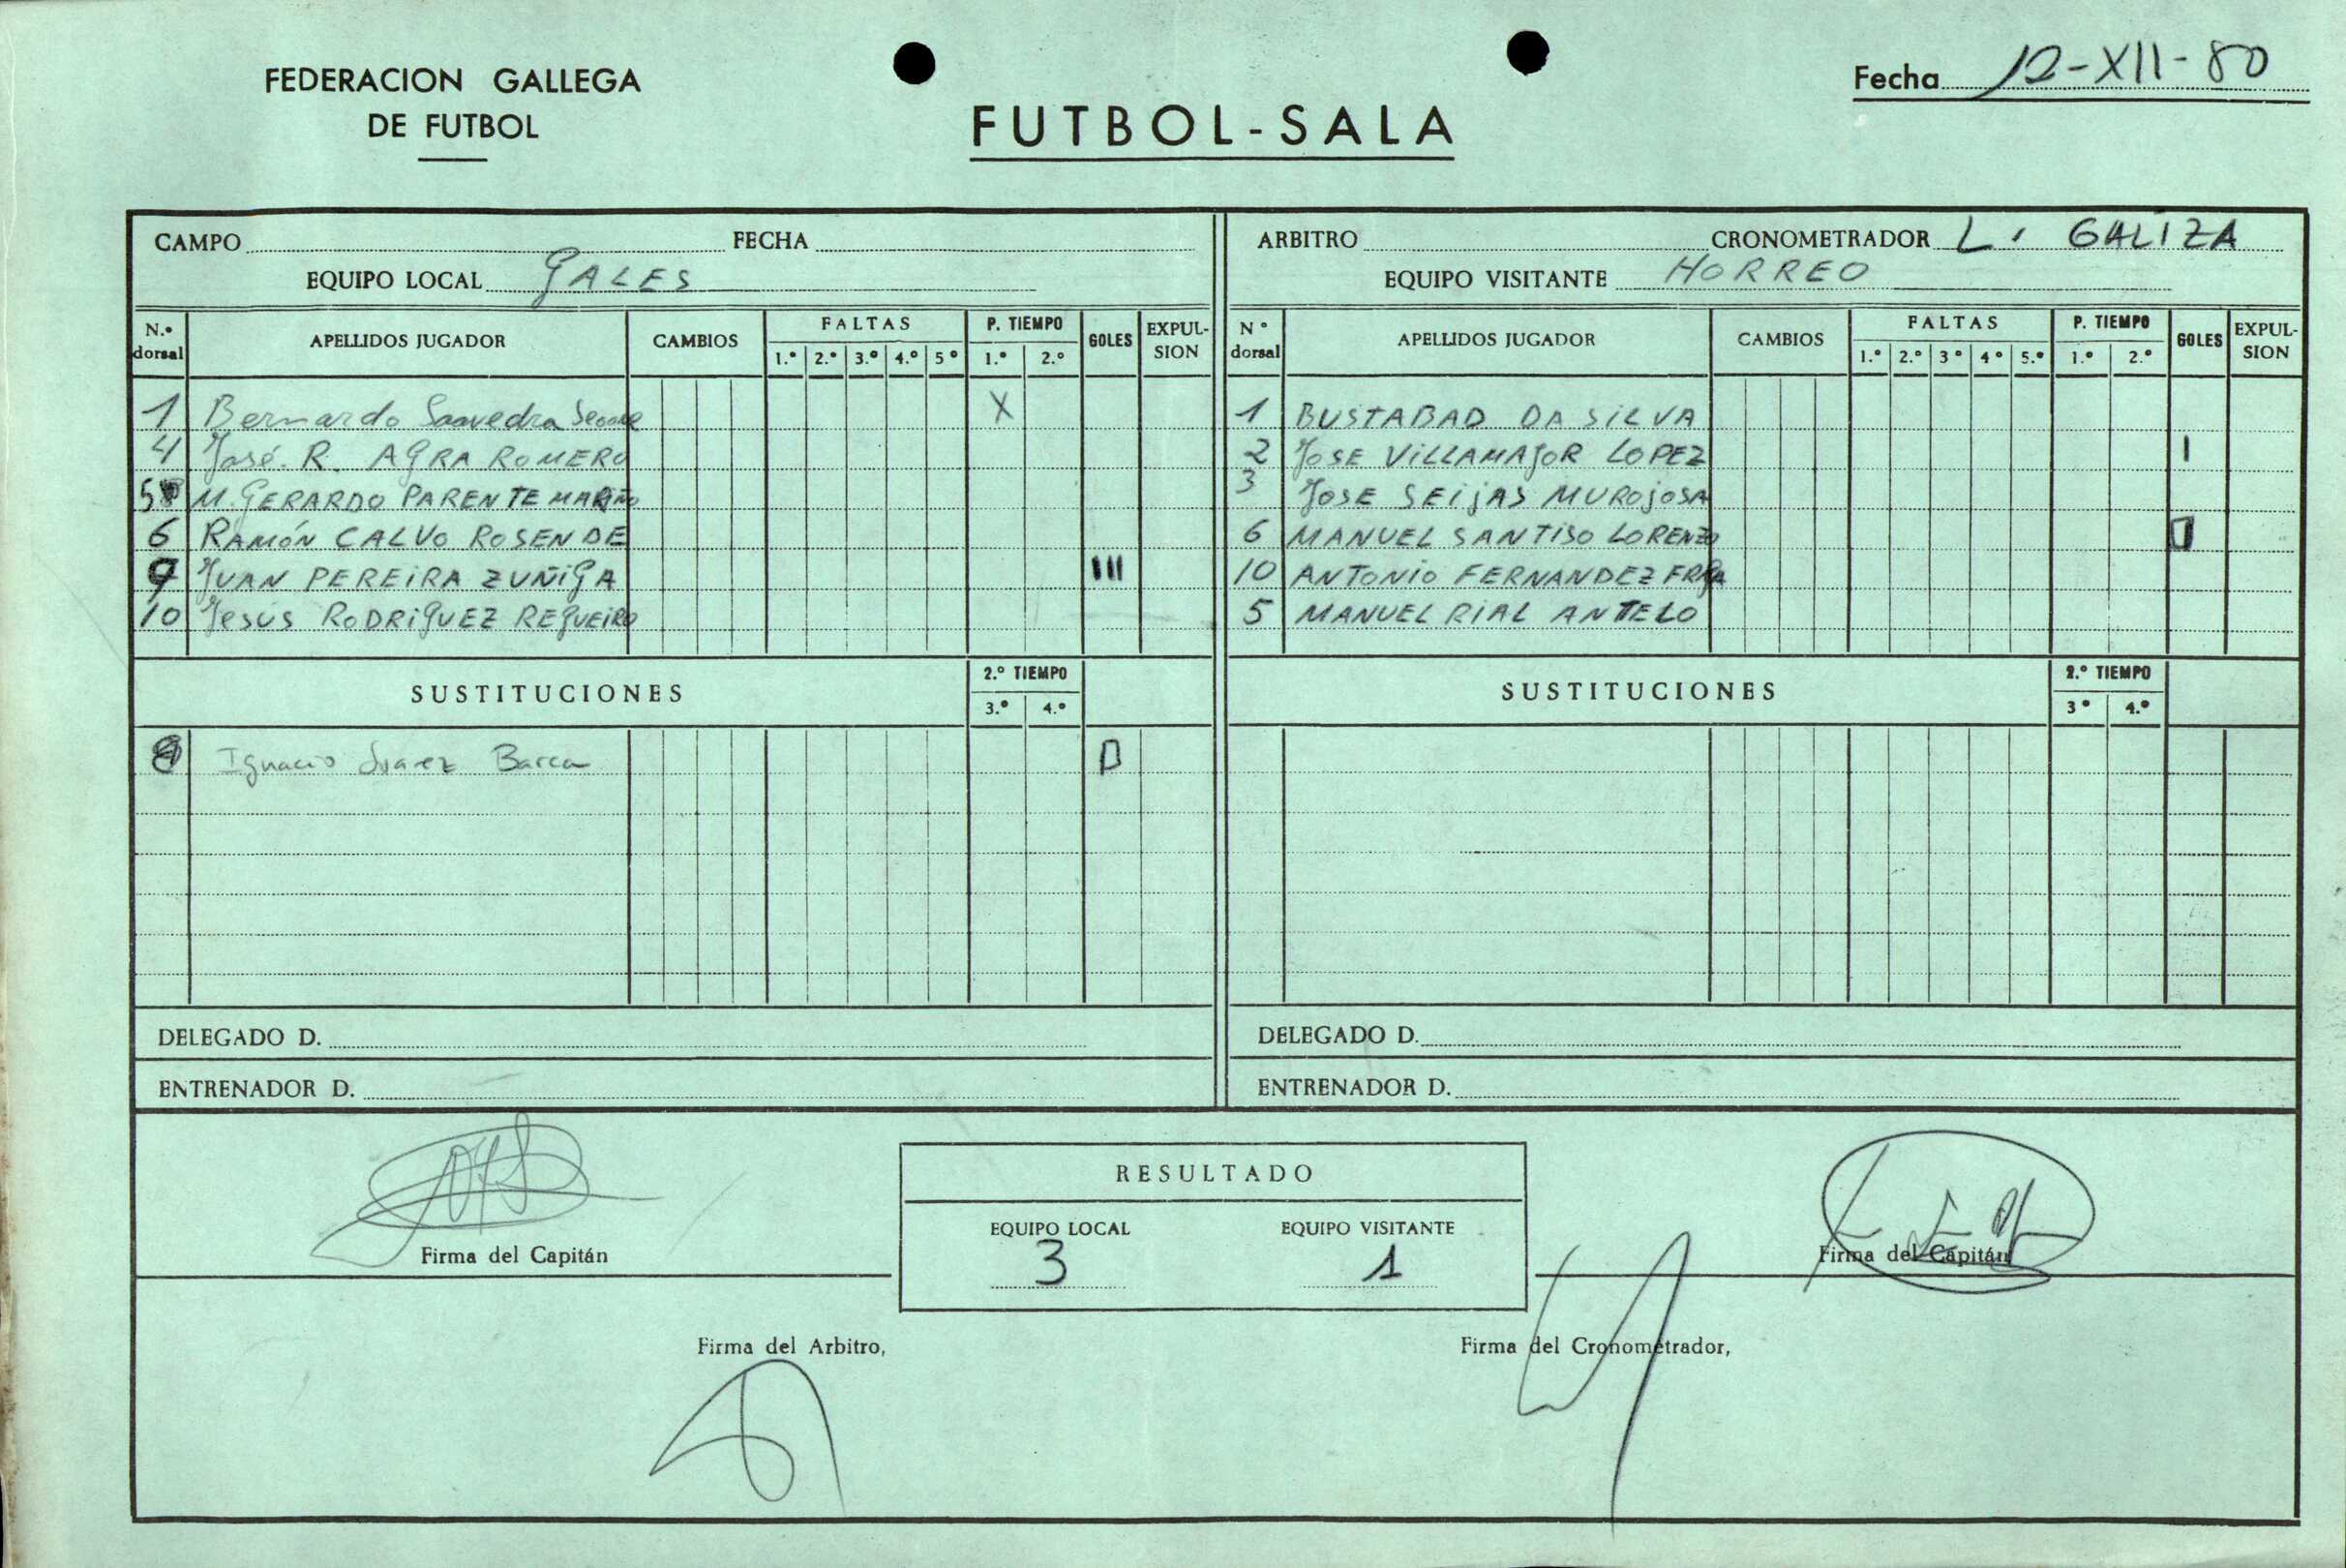 FEDERACION GALLEGA
DE FUTBOL
FUTBOL-SALA
Fecha 12-XII-80
CAMPO FECHA
EQUIPO LOCAL GALES
N.º dorsal APELLIDOS JUGADOR CAMBIOS FALTAS 1.º 2.º 3.º 4.º 5º P. TIEMPO 1.º 2.º GOLES EXPULSION
1 Bernardo Saavedra X
4 José. R. AGRA ROMERO
5 M. GERARDO PARENTE MARIÑO
6 RAMÓN CALVO ROSENDE
9 JUAN PEREIRA ZUÑIGA III
10 JESÚS RODRIGUEZ REGUEIRO
SUSTITUCIONES 2.º TIEMPO 3.º 4.º
Ignacio Suarez Barca
DELEGADO D.
ENTRENADOR D.
ARBITRO CRONOMETRADOR L. GALIZA
EQUIPO VISITANTE HORREO
Nº dorsal APELLIDOS JUGADOR CAMBIOS FALTAS 1.º 2.º 3º 4º 5.º P. TIEMPO 1.º 2.º GOLES EXPULSION
1 BUSTABAD DA SILVA
2 JOSE VILLAMAJOR LOPEZ I
3 JOSE SEIJAS MUROJOSA
6 MANUEL SANTISO LORENZO
10 ANTONIO FERNANDEZ FRAGA
5 MANUEL RIAL ANTELO
SUSTITUCIONES 2.º TIEMPO 3º 4.º
DELEGADO D.
ENTRENADOR D.
Firma del Capitán
RESULTADO
EQUIPO LOCAL EQUIPO VISITANTE
3 1
Firma del Capitán
Firma del Arbitro,
Firma del Cronometrador,